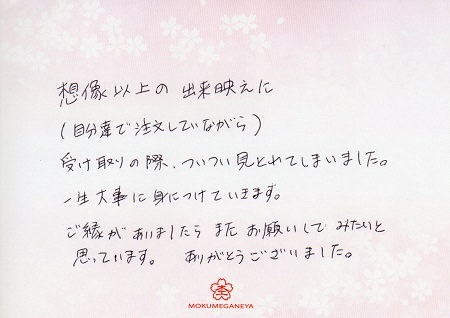 想像以上の 出来映えに
(自分達で注文していながら)
受け取りの際、ついつい見とれてしまいました。
一生大事に身につけていきます。
ご縁がありましたら また お願いして みたいと
思っています。 ありがとうございました。
MOKUMEGANEYA